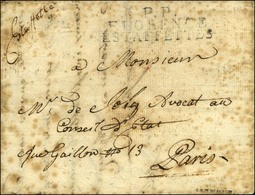 Estaffette
P.P.
FLORENCE
ESTAFFETTES
à Monsieur
Mr. de Joly Avocat au
Conseil d'Etat
rue Gaillon no 13
Paris